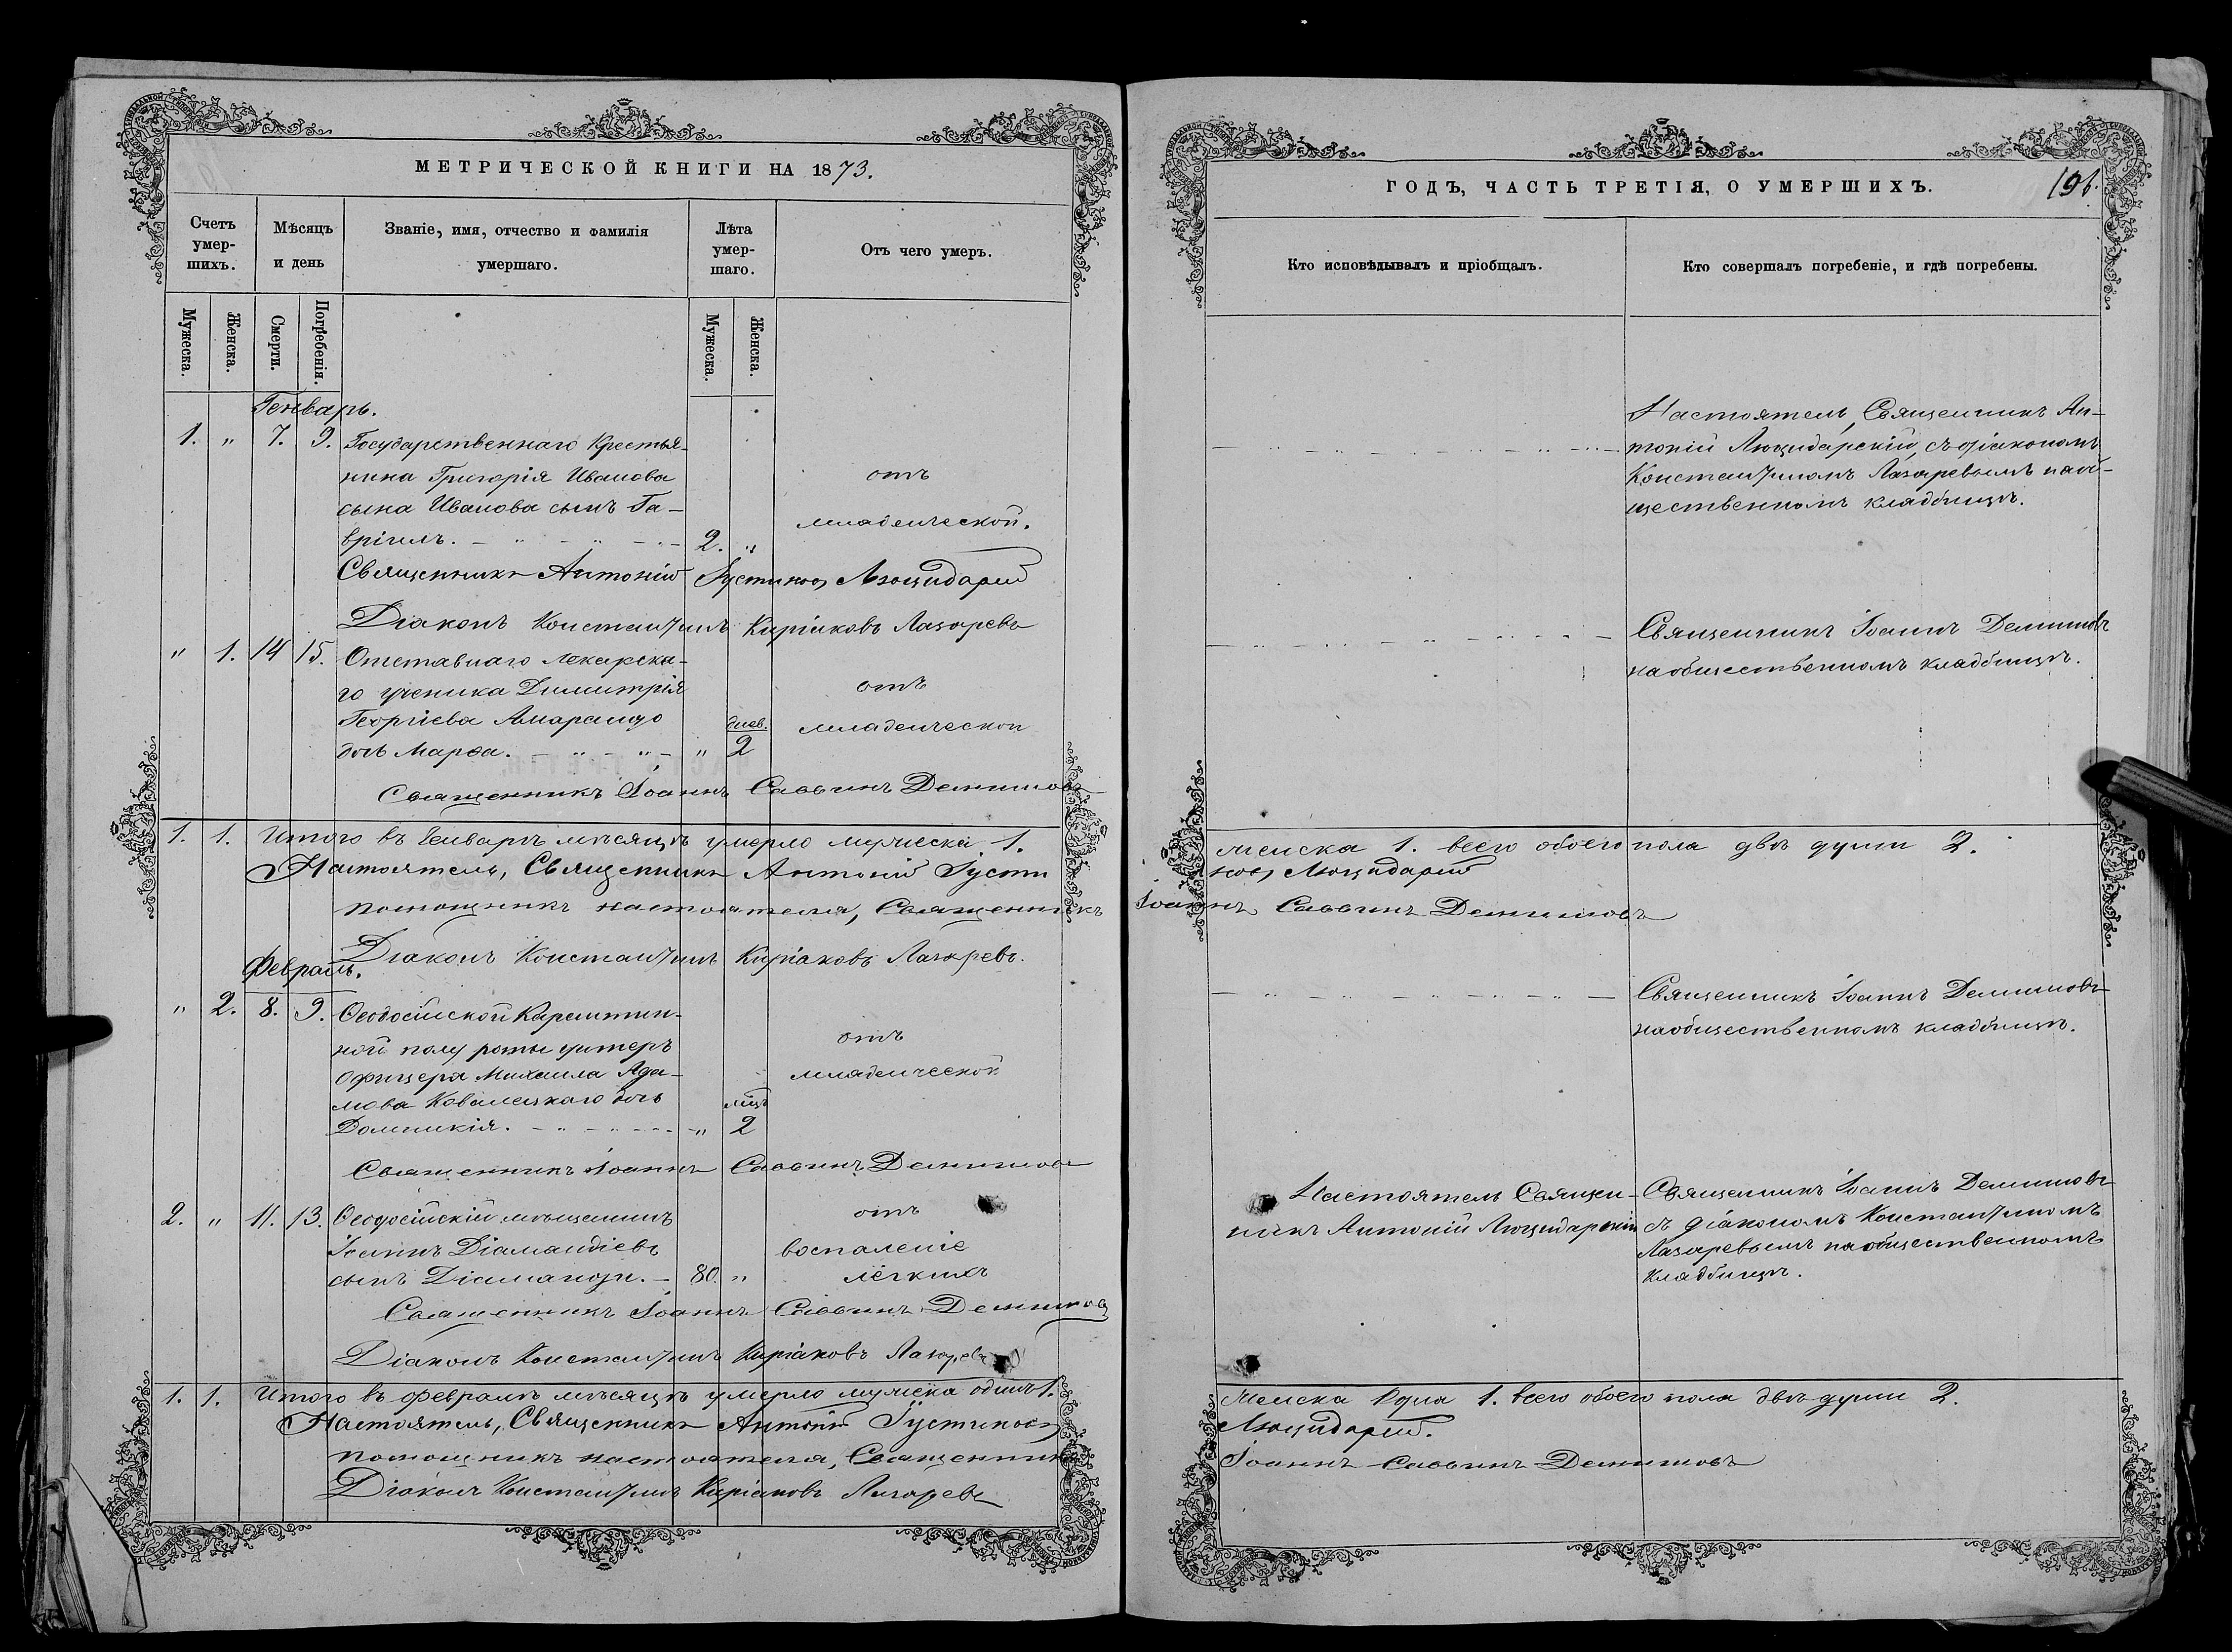 МЕТРИЧЕСКОЙ КНИГИ НА 1873.
Счетъ умер-шихъ.
Мѣсяцъ и день
Званіе, имя, отчество и фамилія умершаго.
Лѣта умер-шаго.
Отъ чего умеръ.
Мужеска.
Женска.
Смерти.
Погребенія.
Мужеска.
Женска.
Генварь.
1. " 7. 9. Государственнаго Крестья-
нина Григорія Иванова
отъ
сына Иванова сынъ Га-
младенческой.
вріилъ. 2. "
Священникъ Антоній Іустиновъ Люцидарій
Діаконъ Константинъ Киріаковъ Лазаревъ
" 1. 14 15. Отставнаго Лекарска-
го ученика Димитрія
отъ
Георгіева Амарандо
днев. младенческой
дочь Марѳа. " 2
Священникъ Іоаннъ Саввинъ Демишовъ
1. 1. Итого въ Генварѣ мѣсяцѣ умерло мужеска 1.
Настоятель, Священникъ Антоній Іусти
помощникъ настоятеля, Священникъ
Діаконъ Константинъ Киріаковъ Лазаревъ.
Февраль.
" 2. 8. 9. Ѳеодосійской Карантин-
ной полу роты унтеръ
отъ
Офицера Михаила Ада-
младенческой
мова Ковалецкаго дочь
мѣц.
Домникія. " 2
Священникъ Іоаннъ Саввинъ Демишовъ
2. " 11. 13. Ѳеодосійскій мѣщанинъ
отъ
Іоаннъ Діамандіевъ
воспаленіе
сынъ Діаманди. 80. " легкихъ
Священникъ Іоаннъ Саввинъ Демишовъ
Діаконъ Константинъ Киріаковъ Лазаревъ
1. 1. Итого въ Февралѣ мѣсяцѣ умерло мужеска одинъ 1.
Настоятель, Священникъ Антоній Іустиновъ
помощникъ настоятеля, Священникъ
Діаконъ Константинъ Киріаковъ Лазаревъ
ГОДЪ, ЧАСТЬ ТРЕТІЯ, О УМЕРШИХЪ.
Кто исповѣдывалъ и пріобщалъ.
Кто совершалъ погребеніе, и гдѣ погребены.
Настоятель, Священникъ Ан-
тоній Люцидарскій, съ діакономъ
Константиномъ Лазаревымъ на об-
щественномъ кладбищѣ.
Священникъ Іоаннъ Демишовъ
на общественномъ кладбищѣ.
женска 1. всего обоего пола двѣ души 2.
новъ Люцидарій
Іоаннъ Саввинъ Демишовъ
Священникъ Іоаннъ Демишовъ
на общественномъ кладбищѣ.
Настоятель Священ-
никъ Антоній Люцидарскій
Священникъ Іоаннъ Демишовъ
съ діакономъ Константиномъ
Лазаревымъ на общественномъ
кладбищѣ.
Женска одна 1. всего обоего пола двѣ души 2.
Люцидарій.
Іоаннъ Саввинъ Демишовъ